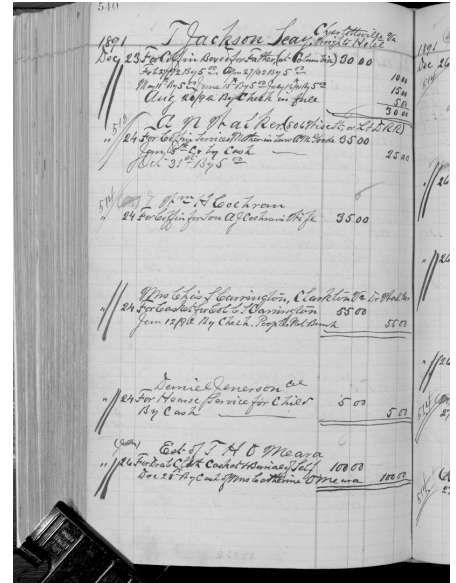 510
T Jackson Seay Charlottesville Va
1891 Wright's Hotel
Dec 23 For Coffin Boxed for Father (at Columbia) 30 00
Feb 27/92 By 5 00 27/92 By 5 00 10 00
May 11th By 5 00 June 15th By 5 00 July 16/92 By 5 00 15 00
Aug 20/92 By Check in full 5 00
30 00
A N Walker
" 24 For Coffin Services Mother in Law 35 00
Jan 8th Cr by Cash 25 00
Oct 31st By 5 00
Wm H Cochran
" 24 For Coffin for Son A J Cochran's Wife 35 00
Mrs Chas S Carrington, Clarkton Va
" 24 For Casket for Col C S Carrington 55 00
Jan 12/92 By Check Peoples Nat Bank 55 00
Daniel Jenerson Col
" 24 For Hearse Service for Child 5 00
By Cash 5 00
Est of T H O Meara
" 26 For Drab Cloth Casket & Burial of Self 100 00
Dec 28th By Cash of Mrs Catherine O Meara 100 00
1891
Dec 26